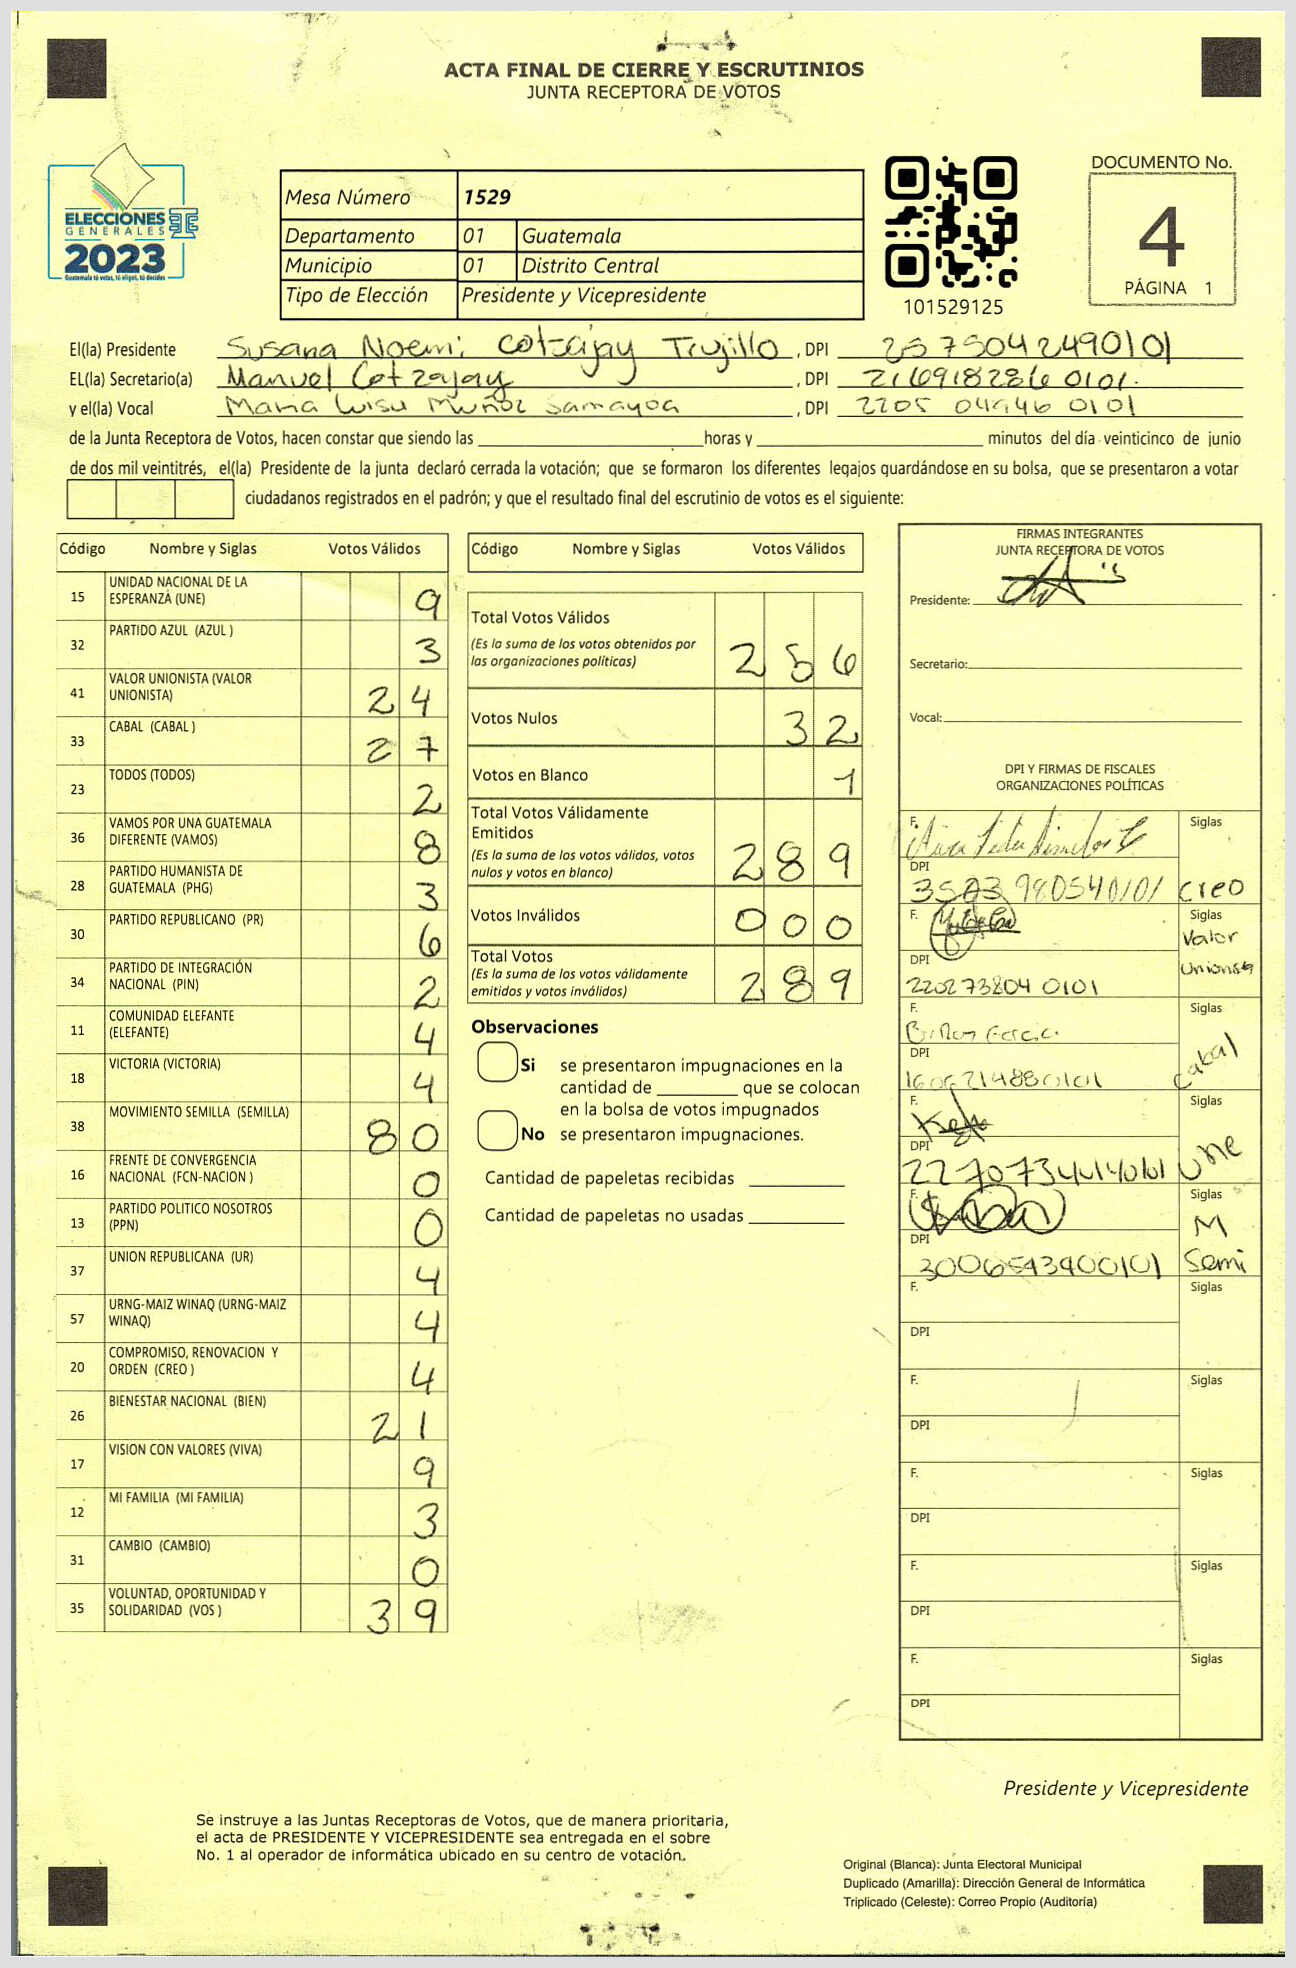 ACTA FINAL DE CIERRE Y ESCRUTINIOS
JUNTA RECEPTORA DE VOTOS
ELECCIONES
GENERALES
2023
Guatemala tú votas, tú eliges, tú decides
Mesa Número 1529
Departamento 01 Guatemala
Municipio 01 Distrito Central
Tipo de Elección Presidente y Vicepresidente
101529125
DOCUMENTO No.
4
PÁGINA 1
El(la) Presidente Susana Noemi Cotzajay Trujillo, DPI 2575042490101
EL(la) Secretario(a) Manuel Cotzajay, DPI 2169182860101.
y el(la) Vocal Maria Luisa Muñoz Samayoa, DPI 2205 04946 0101
de la Junta Receptora de Votos, hacen constar que siendo las horas y minutos del día veinticinco de junio
de dos mil veintitrés, el(la) Presidente de la junta declaró cerrada la votación; que se formaron los diferentes legajos guardándose en su bolsa, que se presentaron a votar
ciudadanos registrados en el padrón; y que el resultado final del escrutinio de votos es el siguiente:
Código Nombre y Siglas Votos Válidos
15 UNIDAD NACIONAL DE LA ESPERANZA (UNE) 9
32 PARTIDO AZUL (AZUL ) 3
41 VALOR UNIONISTA (VALOR UNIONISTA) 24
33 CABAL (CABAL ) 27
23 TODOS (TODOS) 2
36 VAMOS POR UNA GUATEMALA DIFERENTE (VAMOS) 8
28 PARTIDO HUMANISTA DE GUATEMALA (PHG) 3
30 PARTIDO REPUBLICANO (PR) 6
34 PARTIDO DE INTEGRACIÓN NACIONAL (PIN) 2
11 COMUNIDAD ELEFANTE (ELEFANTE) 4
18 VICTORIA (VICTORIA) 4
38 MOVIMIENTO SEMILLA (SEMILLA) 80
16 FRENTE DE CONVERGENCIA NACIONAL (FCN-NACION ) 0
13 PARTIDO POLITICO NOSOTROS (PPN) 0
37 UNION REPUBLICANA (UR) 4
57 URNG-MAIZ WINAQ (URNG-MAIZ WINAQ) 4
20 COMPROMISO, RENOVACION Y ORDEN (CREO ) 4
26 BIENESTAR NACIONAL (BIEN) 21
17 VISION CON VALORES (VIVA) 9
12 MI FAMILIA (MI FAMILIA) 3
31 CAMBIO (CAMBIO) 0
35 VOLUNTAD, OPORTUNIDAD Y SOLIDARIDAD (VOS ) 39
Código Nombre y Siglas Votos Válidos
Total Votos Válidos 256
(Es la suma de los votos obtenidos por
las organizaciones políticas)
Votos Nulos 32
Votos en Blanco 1
Total Votos Válidamente
Emitidos 289
(Es la suma de los votos válidos, votos
nulos y votos en blanco)
Votos Inválidos 000
Total Votos 289
(Es la suma de los votos válidamente
emitidos y votos inválidos)
Observaciones
Si se presentaron impugnaciones en la
cantidad de que se colocan
en la bolsa de votos impugnados
No se presentaron impugnaciones.
Cantidad de papeletas recibidas
Cantidad de papeletas no usadas
FIRMAS INTEGRANTES
JUNTA RECEPTORA DE VOTOS
Presidente:
Secretario:
Vocal:
DPI Y FIRMAS DE FISCALES
ORGANIZACIONES POLÍTICAS
F. Siglas
DPI
Creo
F. Siglas
Valor
Unionista
DPI
220273804 0101
F. Siglas
Cabal
DPI
F. Siglas
UNE
DPI
F. Siglas
M
Semi
DPI
3006543400101
F. Siglas
DPI
F. Siglas
DPI
F. Siglas
DPI
F. Siglas
DPI
F. Siglas
DPI
Presidente y Vicepresidente
Se instruye a las Juntas Receptoras de Votos, que de manera prioritaria,
el acta de PRESIDENTE Y VICEPRESIDENTE sea entregada en el sobre
No. 1 al operador de informática ubicado en su centro de votación.
Original (Blanca): Junta Electoral Municipal
Duplicado (Amarilla): Dirección General de Informática
Triplicado (Celeste): Correo Propio (Auditoría)